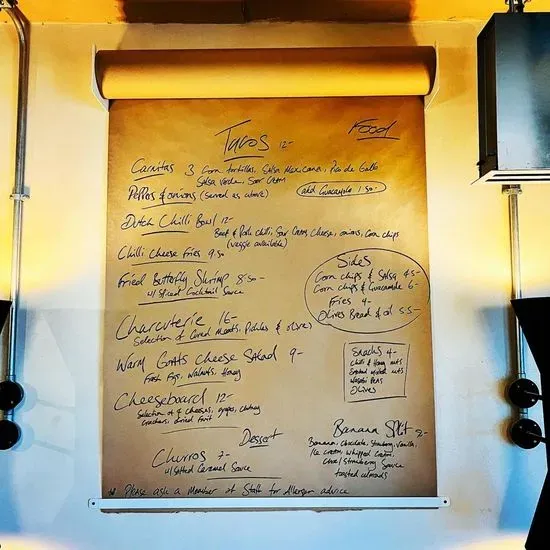 Food
Tacos 12-
Carnitas 3 Corn tortillas, Salsa Mexicana, Pico de Gallo
Salsa Verde, Sour Cream
Peppers & onions (served as above)
add Guacamole 1.50-
Dutch Chilli Bowl 12-
Beef & Pork chilli, Sour Cream, Cheese, onions, Corn chips
(veggie available)
Chilli Cheese Fries 9.50
Fried Butterfly Shrimp 8.50-
w/ Spiced Cocktail Sauce
Sides
Corn chips & Salsa 4.5-
Corn chips & Guacamole 6-
Fries 4-
Olives Bread & oil 5.5-
Charcuterie
Selection of Cured Meats, Pickles & olives
Warm Goats Cheese Salad 9-
Fresh Figs, Walnuts, Honey
Snacks 4-
Chilli & Honey nuts
Smoked nuts
Wasabi Peas
Olives
Cheeseboard 12-
Selection of 4 cheeses, grapes, chutney
Crackers, dried fruit
Dessert
Churros 7-
w/ Salted Caramel Sauce
Banana Split
Banana, Chocolate, Strawberry, Vanilla,
Ice cream, whipped cream,
Choc/Strawberry Sauce
toasted almonds
* Please ask a Member of Staff for Allergen advice